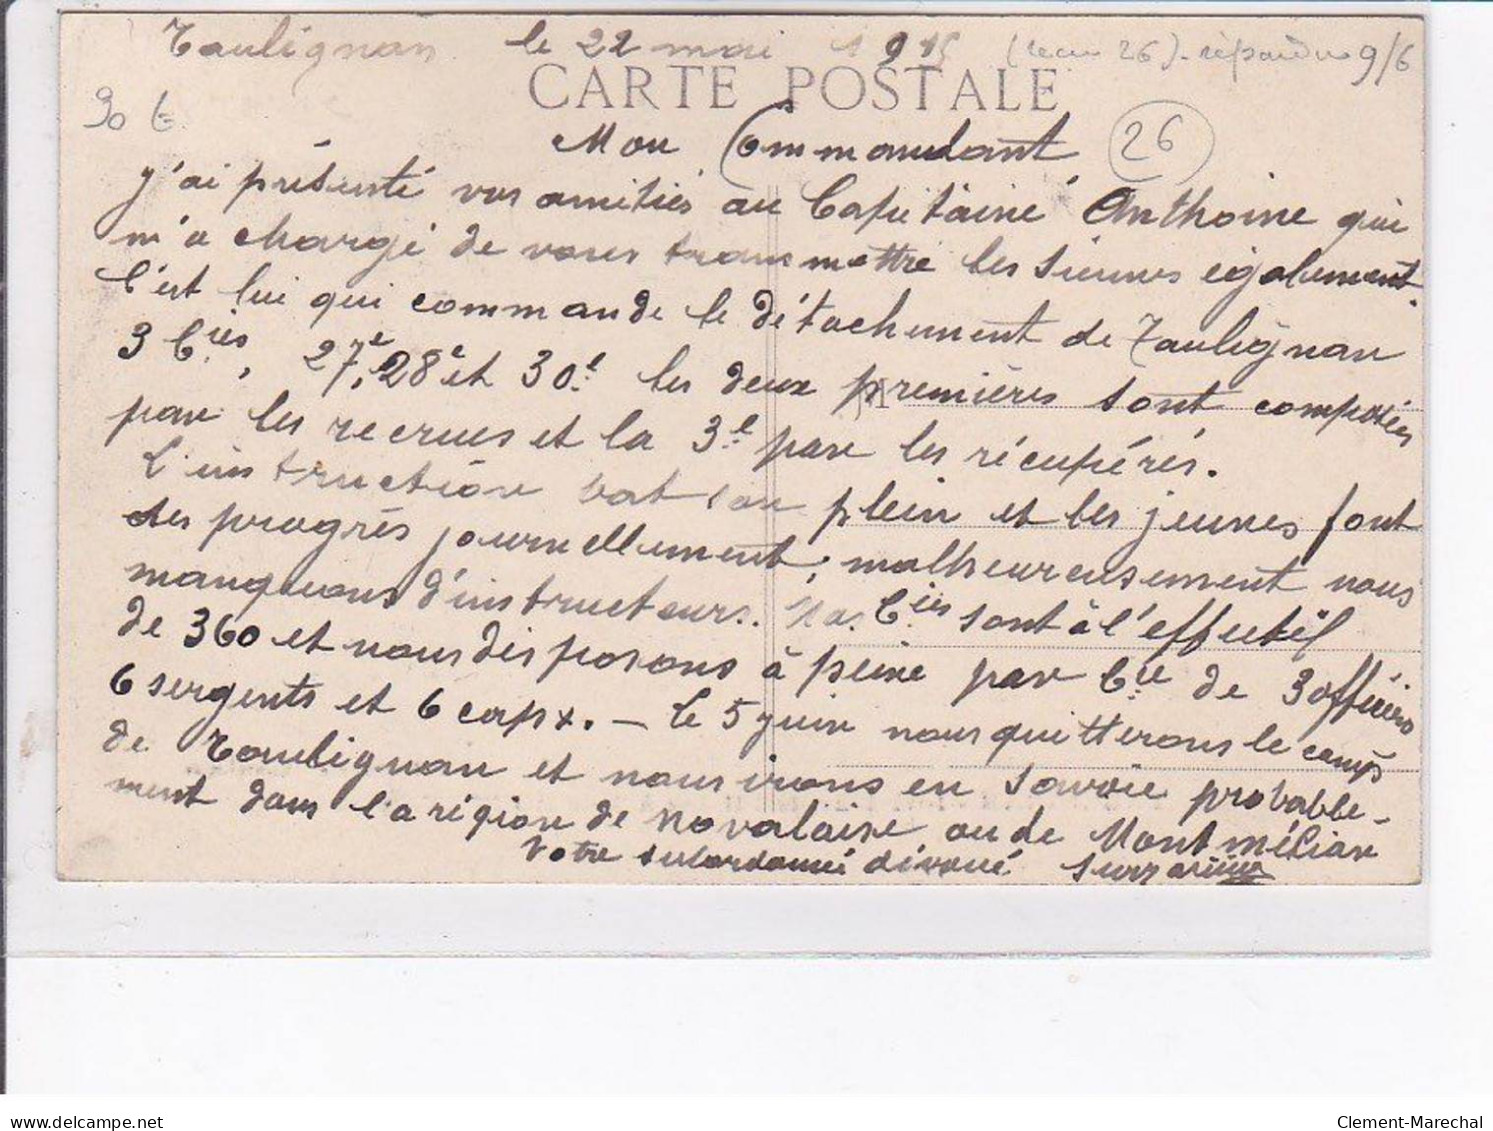 Taulignan le 22 mai 1915 (reçu 26) - répondu 9/6
CARTE POSTALE
26
Mon Commandant,
J'ai présenté vos amitiés au Capitaine Anthoine qui
m'a chargé de vous transmettre les siennes également.
C'est lui qui commande le détachement de Taulignan
3 Cies, 27e, 28e et 30e. les deux premières sont composées
par les recrues et la 3e par les récupérés.
L'instruction bat son plein et les jeunes font
des progrès journellement; malheureusement nous
manquons d'instructeurs. Nos Cies sont à l'effectif
de 360 et nous disposons à peine par Cie de 3 officiers
6 sergents et 6 capx. — Le 5 juin nous quitterons le camp
de Taulignan et nous irons en Savoie probable-
ment dans la région de Novalaise ou de Montmélian
Votre subordonné dévoué
Clement-Marechal
delcampe.net